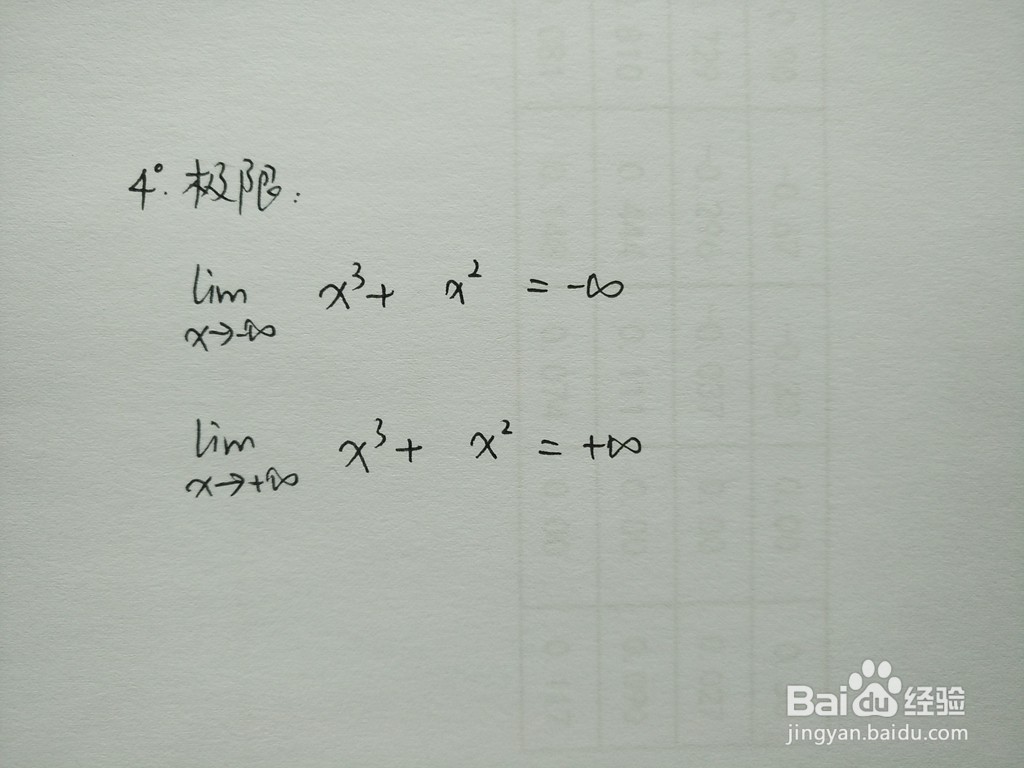 4°. 极限:
lim x³+ x² = -∞
x→-∞
lim x³+ x² = +∞
x→+∞
Bai du 经验
jingyan.baidu.com